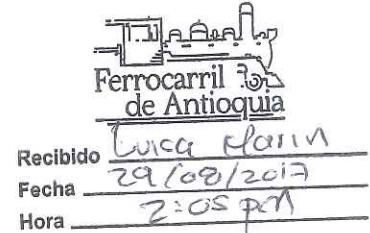 Ferrocarril
de Antioquia
Recibido Luisa Marin
Fecha 29/08/2017
Hora 2:05 pm